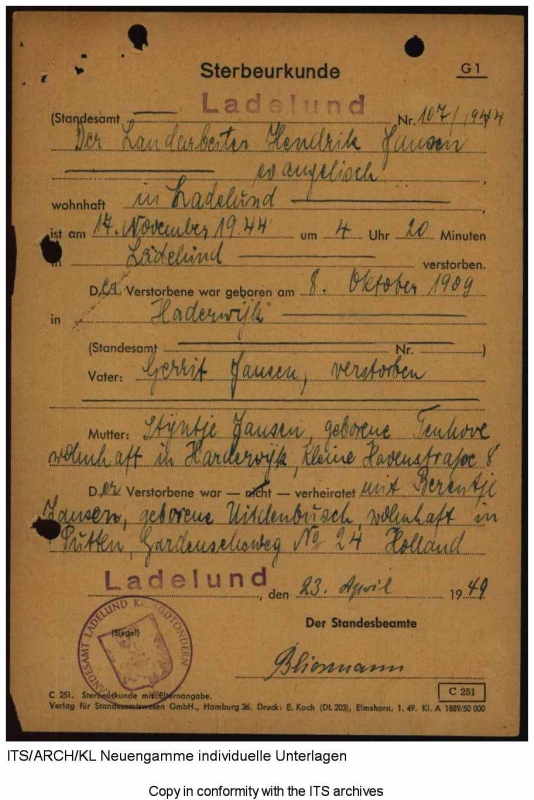 Sterbeurkunde
G 1
(Standesamt Ladelund Nr. 107/1944
Der Landarbeiter Hendrik Jansen
evangelisch
wohnhaft in Ladelund
ist am 17. November 1944 um 4 Uhr 20 Minuten
in Ladelund verstorben.
Der Verstorbene war geboren am 8. Oktober 1909
in Haderwijk
(Standesamt Nr. )
Vater: Gerrit Jansen, verstorben
Mutter: Stijntje Jansen, geborene Tenhove
wohnhaft in Harderwijk, kleine Havenstraße 8
Der Verstorbene war — nicht — verheiratet mit Berentje
Jansen, geborene Uitdenbusch, wohnhaft in
Putten, Gardenscheweg No 24 Holland
Ladelund, den 23. April 1949
(Siegel)
STANDESAMT LADELUND KR. SÜDTONDERN
Der Standesbeamte
C 251. Sterbeurkunde mit Elternangabe.
C 251
Verlag für Standesamtswesen GmbH., Hamburg 36. Druck: E. Koch (DL 203), Elmshorn. 1. 49. Kl. A 1889/50 000
ITS/ARCH/KL Neuengamme individuelle Unterlagen
Copy in conformity with the ITS archives